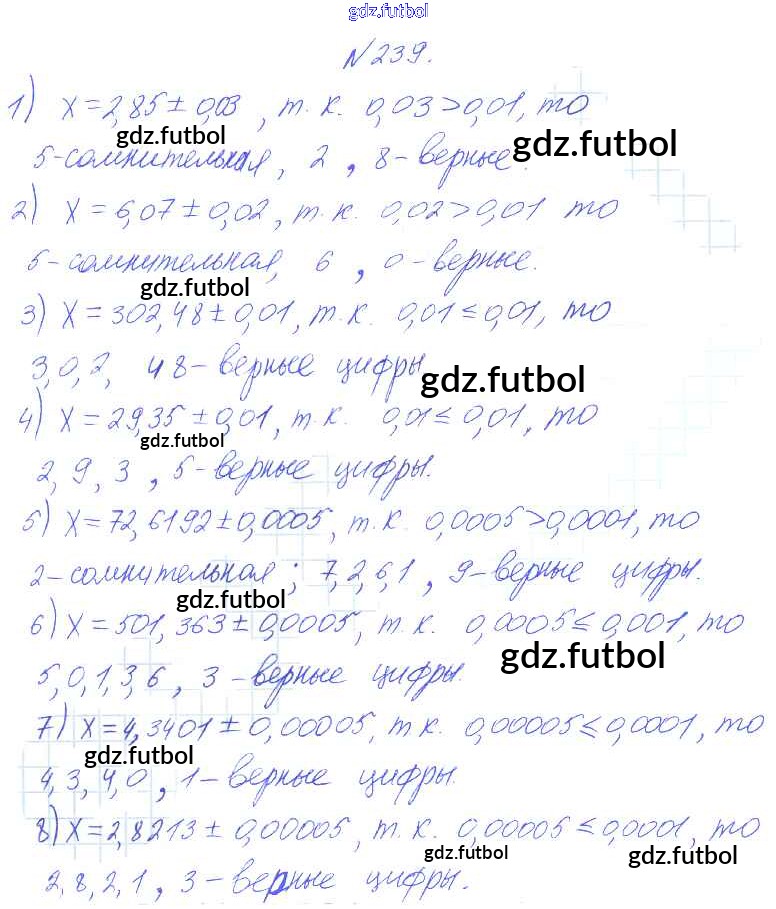 gdz.futbol
N 239.
1) x=2,85±0,03, т.к. 0,03>0,01, то
gdz.futbol
gdz.futbol
5-сомнительная, 2, 8-верные.
2) x=6,07±0,02, т.к. 0,02>0,01 то
5-сомнительная, 6, 0-верные.
gdz.futbol
3) x=302,48±0,01, т.к. 0,01≤0,01, то
3,0,2, 48-верные цифры
gdz.futbol
4) x=29,35±0,01, т.к. 0,01≤0,01, то
gdz.futbol
2, 9, 3, 5-верные цифры.
5) x=72,6192±0,0005, т.к. 0,0005>0,0001, то
2-сомнительная; 7,2,6,1, 9-верные цифры.
gdz.futbol
6) x=501,363±0,0005, т.к. 0,0005≤0,001, то
gdz.futbol
5,0,1,3,6, 3-верные цифры.
7) x=4,3401±0,00005, т.к. 0,00005≤0,0001, то
gdz.futbol
4,3,4,0, 1-верные цифры.
8) x=2,8213±0,00005, т.к. 0,00005≤0,0001, то
gdz.futbol
gdz.futbol
2,8,2,1, 3-верные цифры.